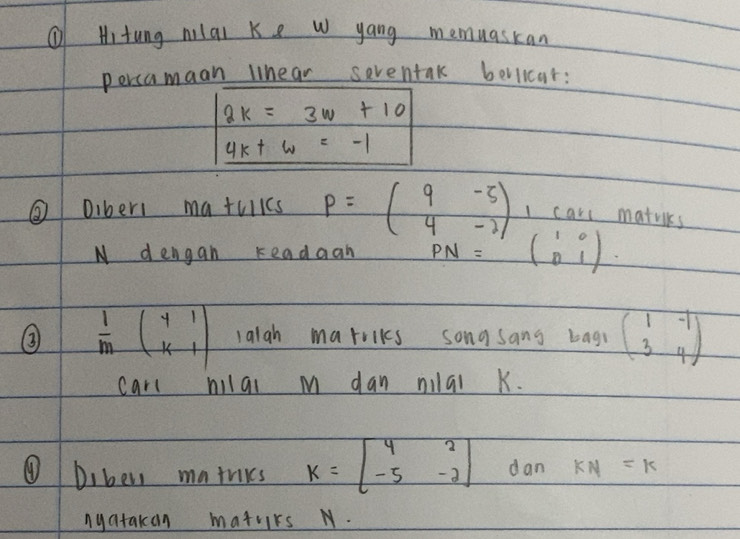 ① Hitung nilai K & W yang memuaskan
persamaan linear serentak berikut:
2K = 3W + 10
4K + W = -1
② Diberi matriks P = ( 9 -5 ) , cari matriks
( 4 -2 )
N dengan keadaan PN = ( 1 0 ) .
( 0 1 )
③ 1/m ( 4 1 ) ialah matriks songsang bagi ( 1 -1 )
( K 1 ) ( 3 4 )
cari nilai M dan nilai K.
④ Diberi matriks K = [ 4 2 ] dan KN = K
[ -5 -2 ]
nyatakan matriks N.